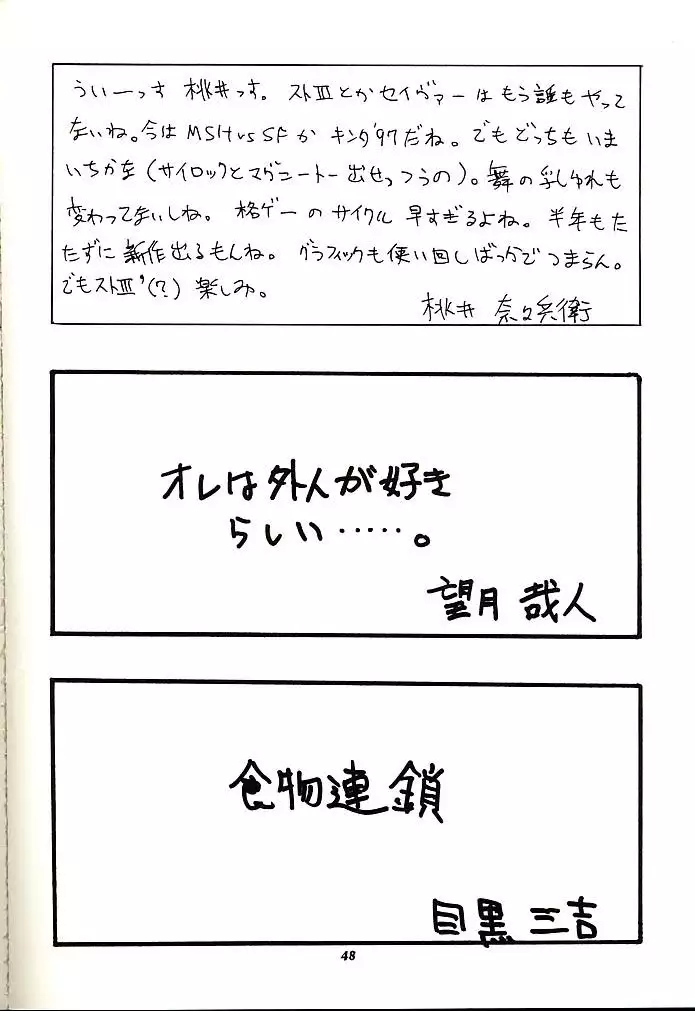 うぃーっす 桃井っす。ストⅢとかセイヴァーはもう誰もやって
ないね。今はMSHvsSFかキング'97だね。でもどっちもいま
いちかな(サイロックとマグニートー出せっつうの)。舞の乳しゅれも
変わってないしね。格ゲーのサイクル早すぎるよね。半年もた
たずに新作出るもんね。グラフィックも使い回しばっかでつまらん。
でもストⅢ'(?)楽しみ。
桃井 奈々兵衛
オレは外人が好き
らしい……。
望月 哉人
食物連鎖
目黒 三吉
48